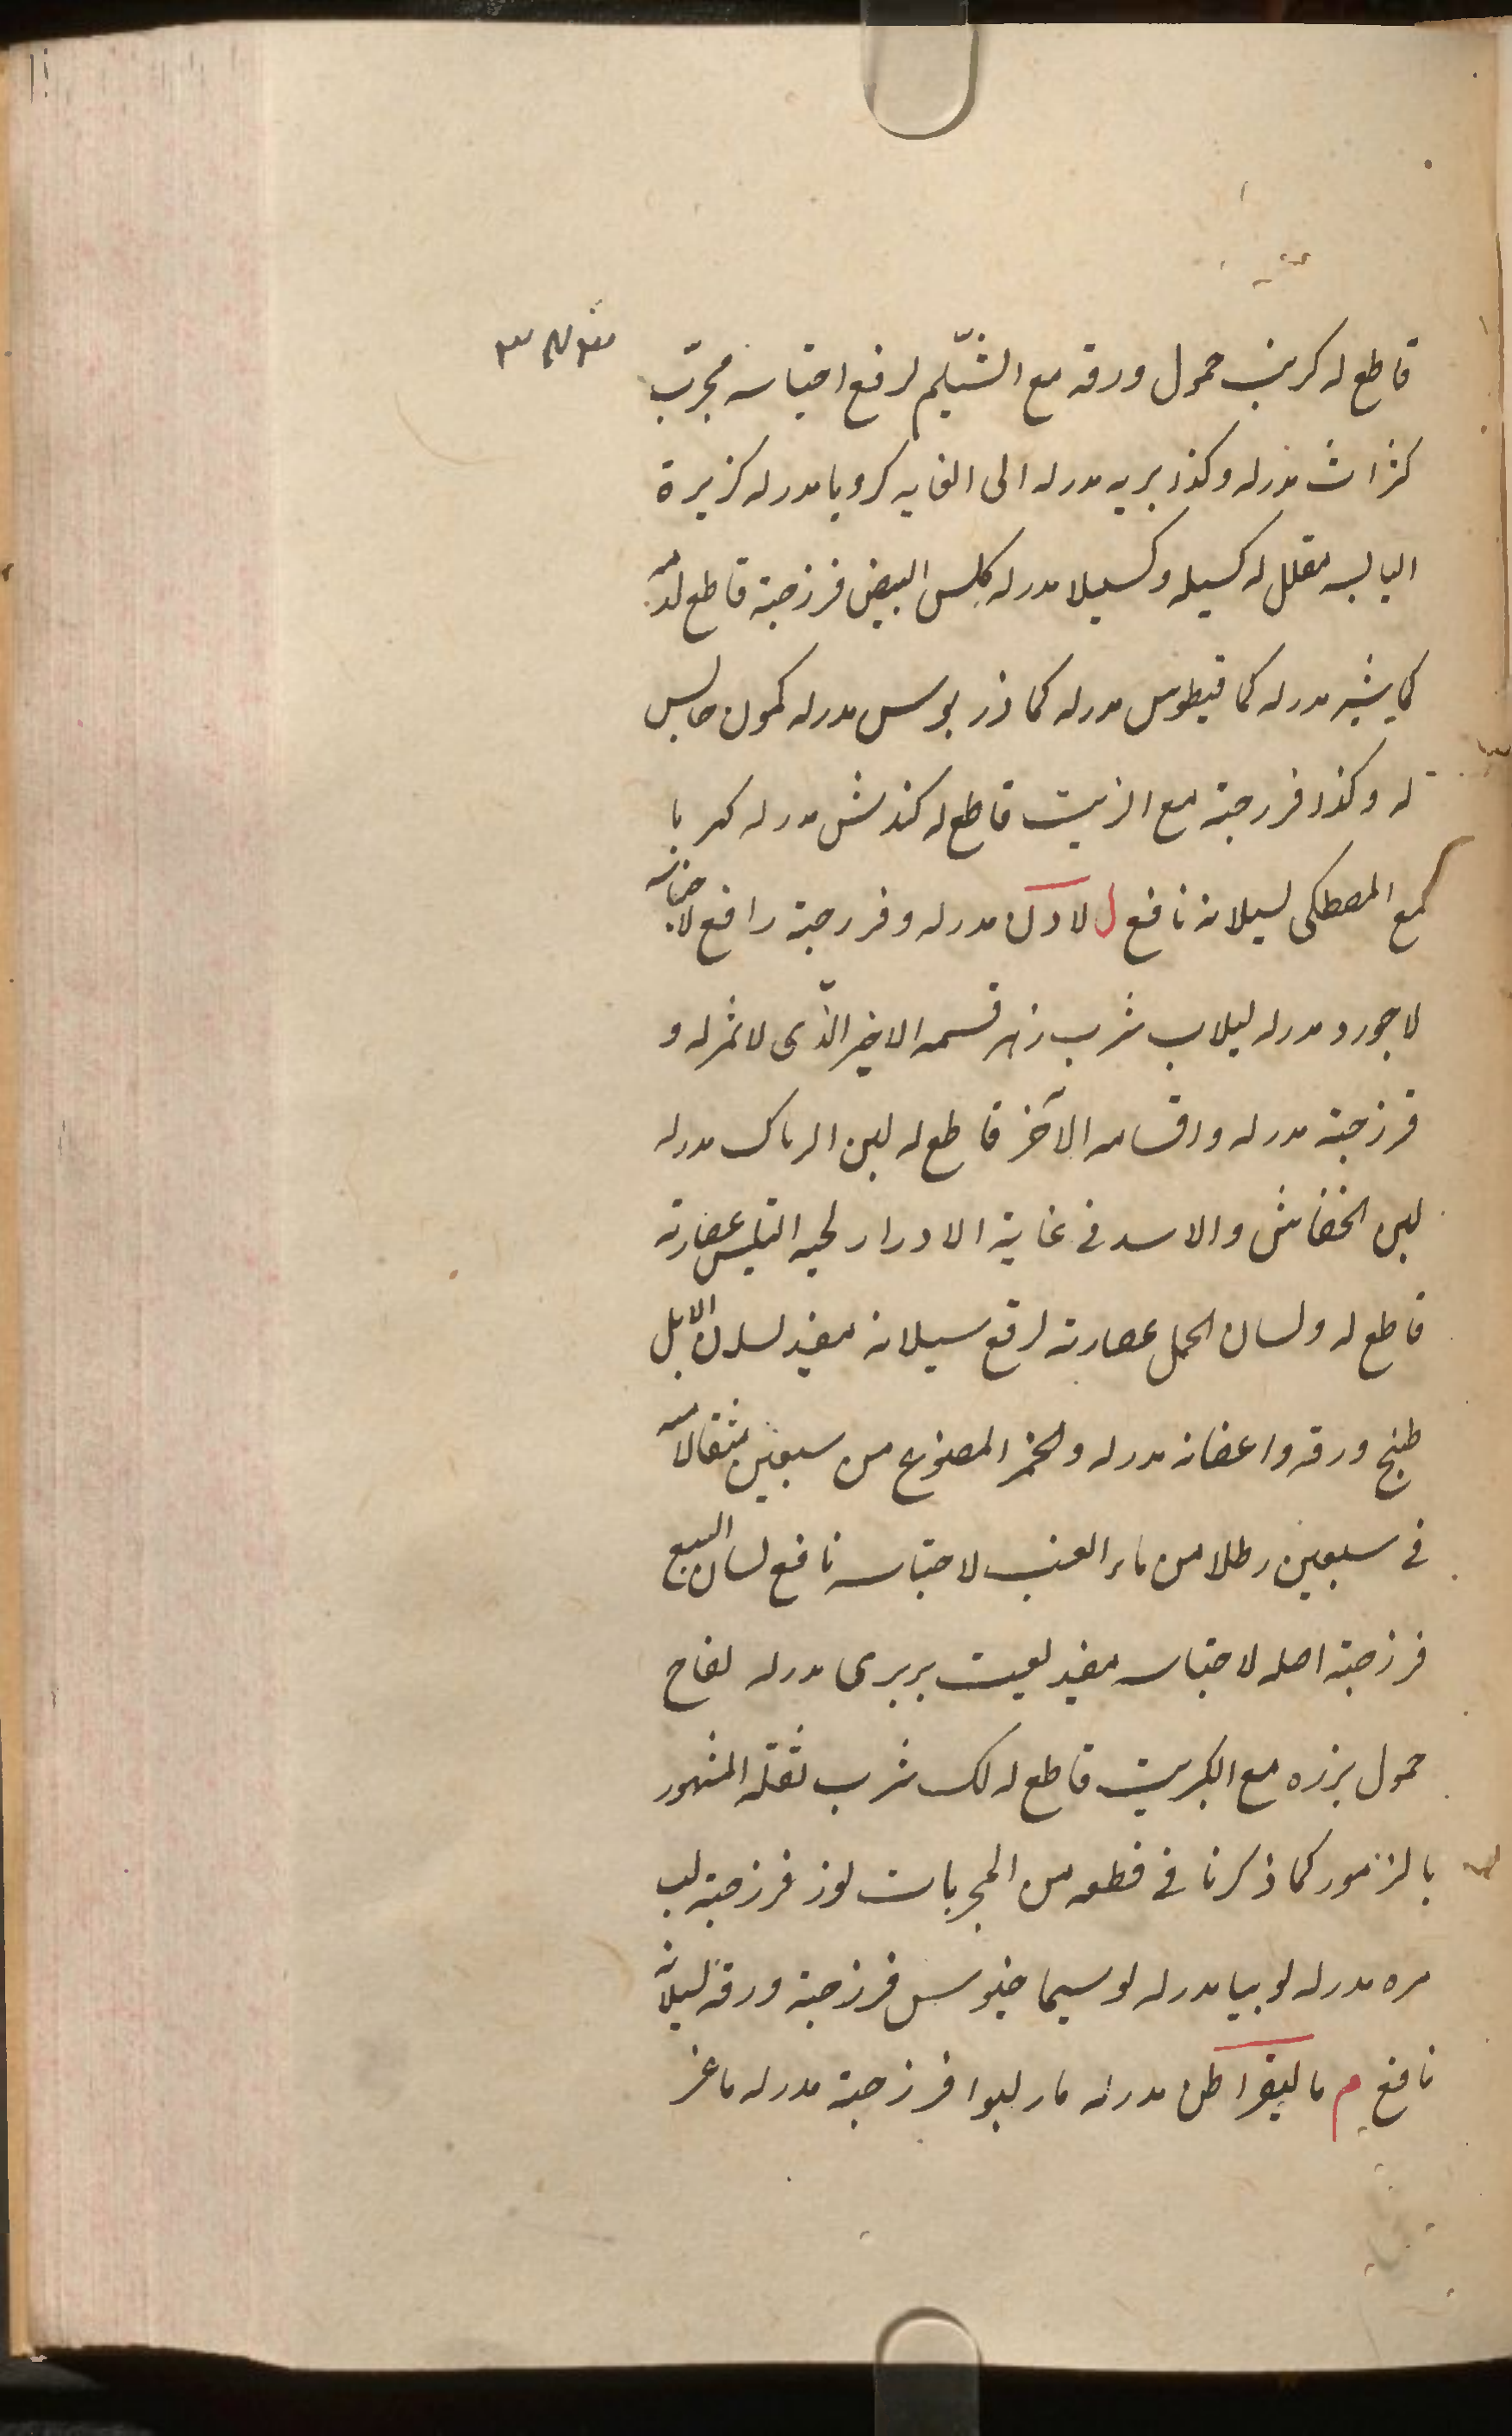 قاطع له كرنب حمول ورقه مع الشّيلم لرفع احتباسه مجرّب
كرّاث مدر له وكذا بريه مدر له الى الغايه كرويا مدر له كزبرة
اليابسه مقلل له كسيله وكسيلا مدر له كلس البيض فرزجة قاطع لدمه
كماشير مدر له كمافيطوس مدر له كماذريوس مدر له كمون حابس
له وكذا فرزجة مع الزيت قاطع له كندش مدر له كهربا
مع المصطكى لسيلانه نافع ل لادن مدر له وفرزجة رافع لاختناقه
لاجورد مدر له لبلاب شرب زهر قسمه الاخير الّذى لا ثمر له و
فرزجة مدر له واقسامه الآخر قاطع له لبن الرماك مدر له
لبن الخفاش والاسد فى غاية الادرار لحية التيس عصارته
قاطع له ولسان الحمل عصارته لرفع سيلانه مفيد لسان الابل
طبخ ورقه واغصانه مدر له والخمر المصنوع من سبعين مثقالا منه
فى سبعين رطلا من ماء العنب لاحتباسه نافع لسان السبع
فرزجة اصله لاحتباسه مفيد لعبت بربرى مدر له لفاح
حمول بزره مع الكبريت قاطع له لك شرب ثفله المشهور
بالزمور كما ذكرنا فى قطعه من المجربات لوز فرزجة لب
مره مدر له لوبيا مدر له لوسيماخيوس فرزجة ورقه لسيلانه
نافع م ماليقراطن مدر له فرزجة مدر له ماعز